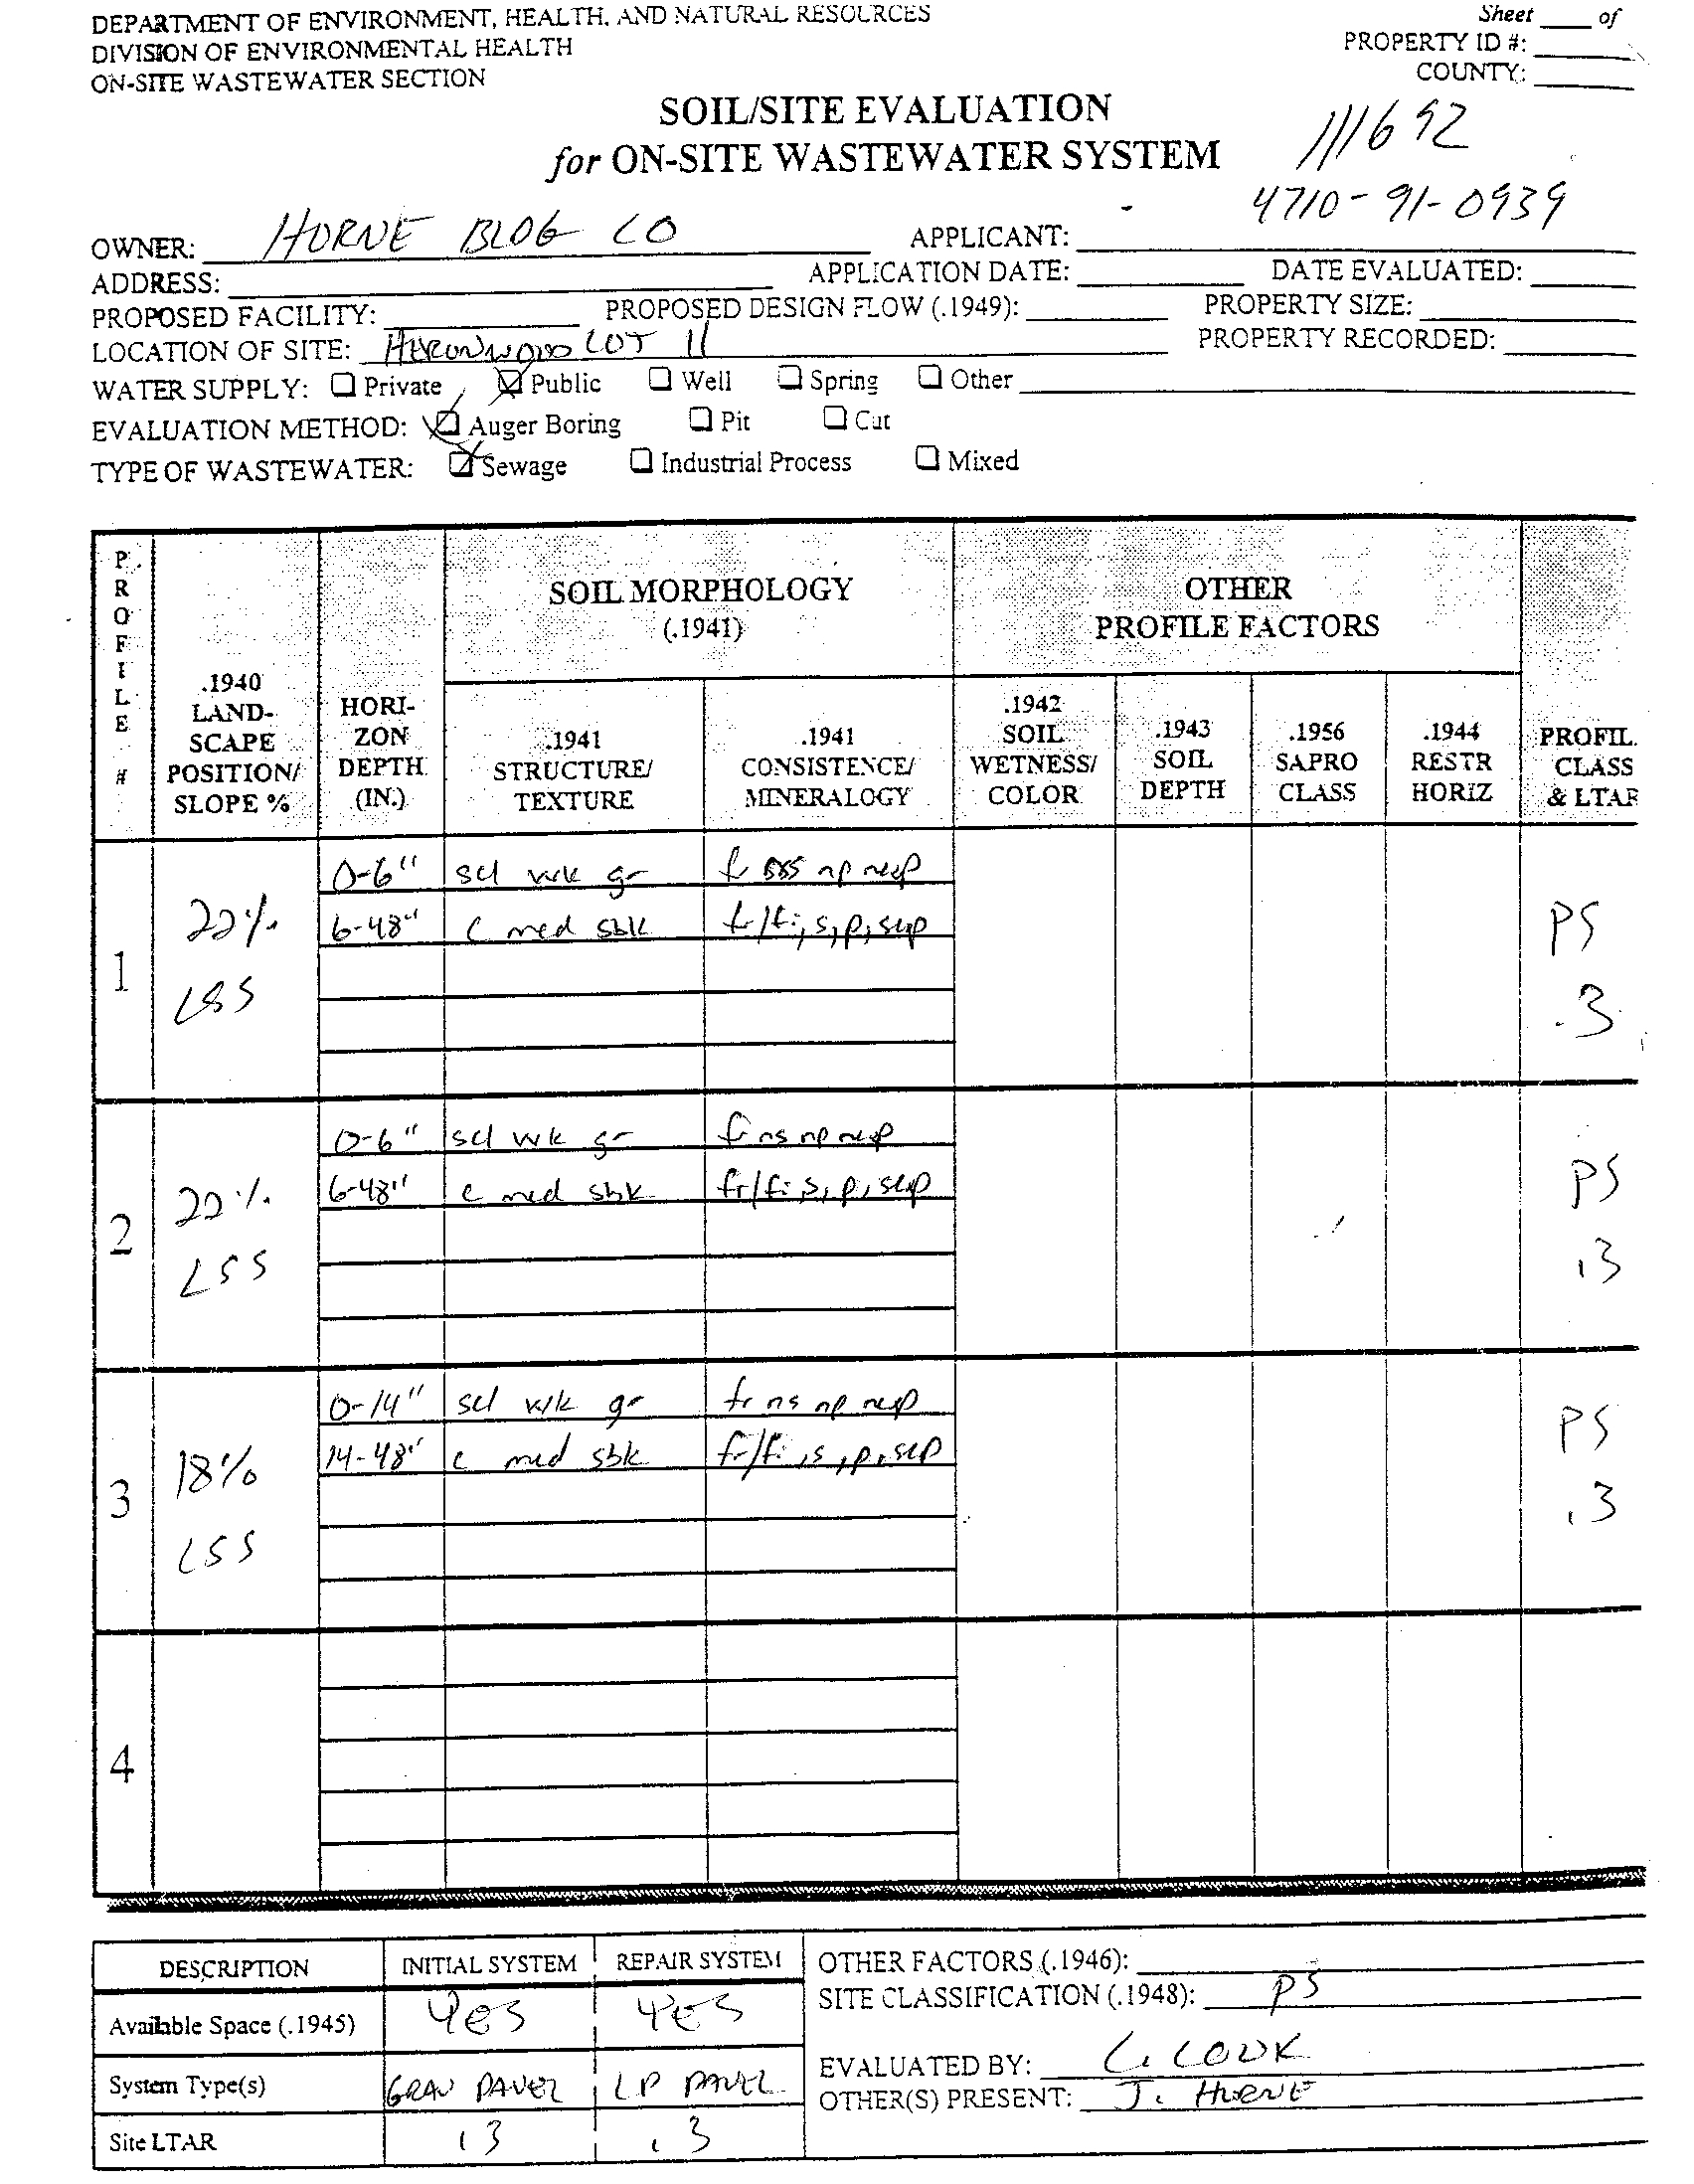 DEPARTMENT OF ENVIRONMENT, HEALTH, AND NATURAL RESOURCES
Sheet ____ of
DIVISION OF ENVIRONMENTAL HEALTH
PROPERTY ID #:
ON-SITE WASTEWATER SECTION
COUNTY:
SOIL/SITE EVALUATION
for ON-SITE WASTEWATER SYSTEM
111692
4710-91-0939
OWNER: HORNE BLDG CO APPLICANT:
ADDRESS: APPLICATION DATE: DATE EVALUATED:
PROPOSED FACILITY: PROPOSED DESIGN FLOW (.1949): PROPERTY SIZE:
LOCATION OF SITE: HERONWOOD LOT 11 PROPERTY RECORDED:
WATER SUPPLY: ☐ Private ☒ Public ☐ Well ☐ Spring ☐ Other
EVALUATION METHOD: ☒ Auger Boring ☐ Pit ☐ Cut
TYPE OF WASTEWATER: ☒ Sewage ☐ Industrial Process ☐ Mixed
PROFILE #
.1940 LAND-SCAPE POSITION/ SLOPE %
HORI-ZON DEPTH (IN.)
SOIL MORPHOLOGY (.1941)
.1941 STRUCTURE/ TEXTURE
.1941 CONSISTENCE/ MINERALOGY
OTHER PROFILE FACTORS
.1942 SOIL WETNESS/ COLOR
.1943 SOIL DEPTH
.1956 SAPRO CLASS
.1944 RESTR HORIZ
PROFIL. CLASS & LTAR
1
22% LSS
0-6" scl wk gr fr np nexp
6-48" c med sbk fr/fi, s, p, sexp
PS .3
2
22% LSS
0-6" scl wk gr fr ns np nexp
6-48" c med sbk fr/fi s, p, sexp
PS .3
3
18% LSS
0-14" scl wk gr fr ns np nexp
14-48" c med sbk fr/fi, s, p, sexp
PS .3
4
DESCRIPTION INITIAL SYSTEM REPAIR SYSTEM
Available Space (.1945) YES YES
System Type(s) GRAV PANEL LP PANEL
Site LTAR .3 .3
OTHER FACTORS (.1946):
SITE CLASSIFICATION (.1948): PS
EVALUATED BY: COOK
OTHER(S) PRESENT: J. HORNE